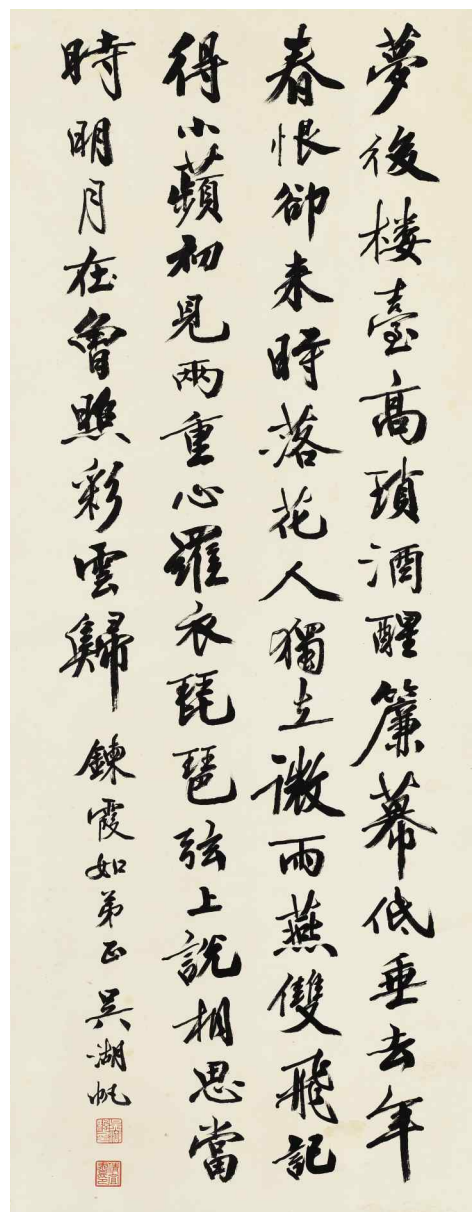 夢後楼臺高瑣酒醒簾幕低垂去年
春恨卻来時落花人獨立微雨燕雙飛記
得小蘋初見兩重心羅衣琵琶弦上說相思當
時明月在曾照彩雲歸
鍊霞如弟正吳湖帆